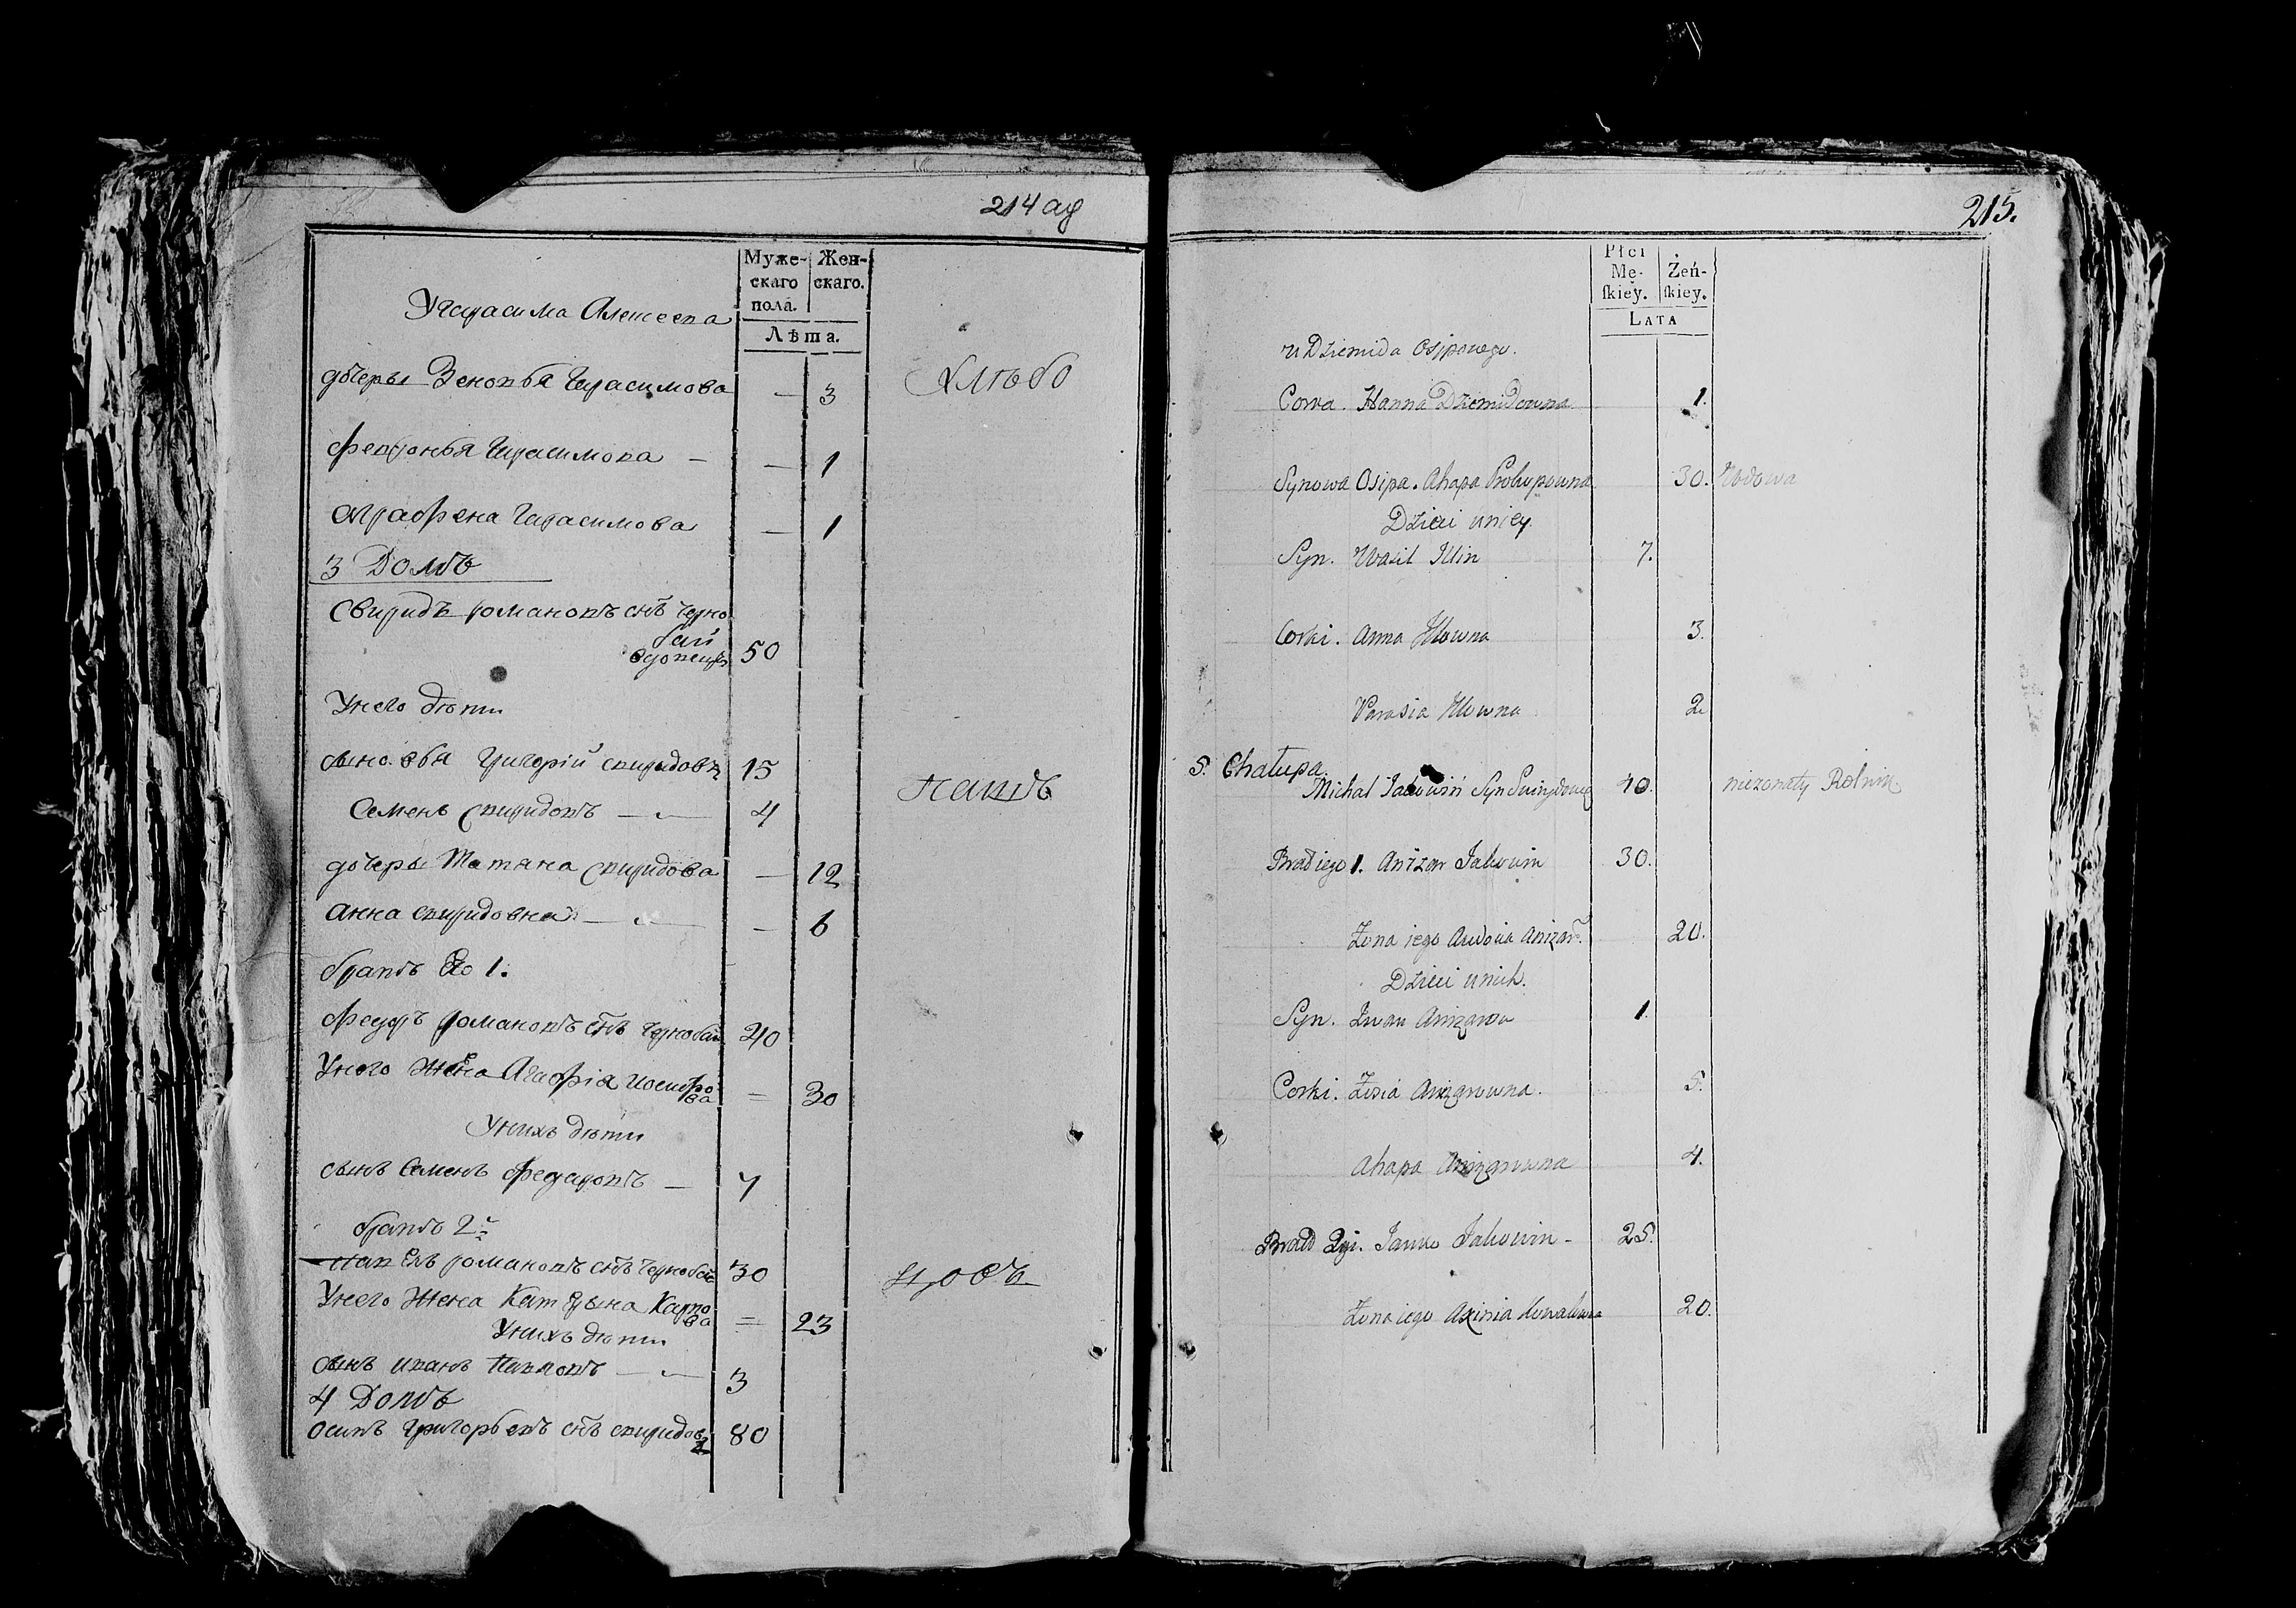 214 ag
Муже-
скаго
пола.
Жен-
скаго.
Лѣта.
Угерасима Алексеева
дочеры Зеновья Герасимова — 3
Февронья Герасимова — — 1
Аграфена Герасимова — 1
3 Домъ
Свиридъ романовъ снъ черно
бай
вдовецъ 50
Унего дѣти
сынов.ья Григорій свиридовъ 15
Семенъ свиридовъ — 4
дочеры Татяна свиридова — 12
анна свиридовна — — 6
братъ Его 1.
Федоръ романовъ снъ чернобай 40
Унего жена Агафіа иосифо
ва = 30
Унихъ дѣти
сынъ Семенъ Федоровъ — 7
братъ 2й
павелъ романовъ снъ чернобай 30
Унего жена Катерына Карпо
ва = 23
Унихъ дѣти
сынъ иванъ павловъ — 3
4 Домъ
осипъ Григорьевъ снъ свиридовъ 80
хлѣбо
пашъ
цовъ
215.
Płci
Mę-
ſkiey.
Żeń-
ſkiey.
LATA
u Dziemida Osipowego.
Corka. Hanna Dziemidowna 1.
Synowa Osipa. Ahapa Prokopowna 30. Wdowa
Dzieci uniey.
Syn. Wasil Illin 7.
Corki. Anna Illowna 3.
Parasia Illowna 2
5. Chałupa.
Michał Jakowin Syn 40. niezonaty Rolnik
Brat iego 1. Anizar Jakowin 30.
Zona iego Awdocia Anizar. 20.
Dzieci unich.
Syn. Iwan Anizarow 1.
Corki. Zosia Anizarowna. 5.
Ahapa Anizarowna 4.
Brat 2gi. Janko Jakowin - 25.
Zona iego Axinia Kowalowa 20.